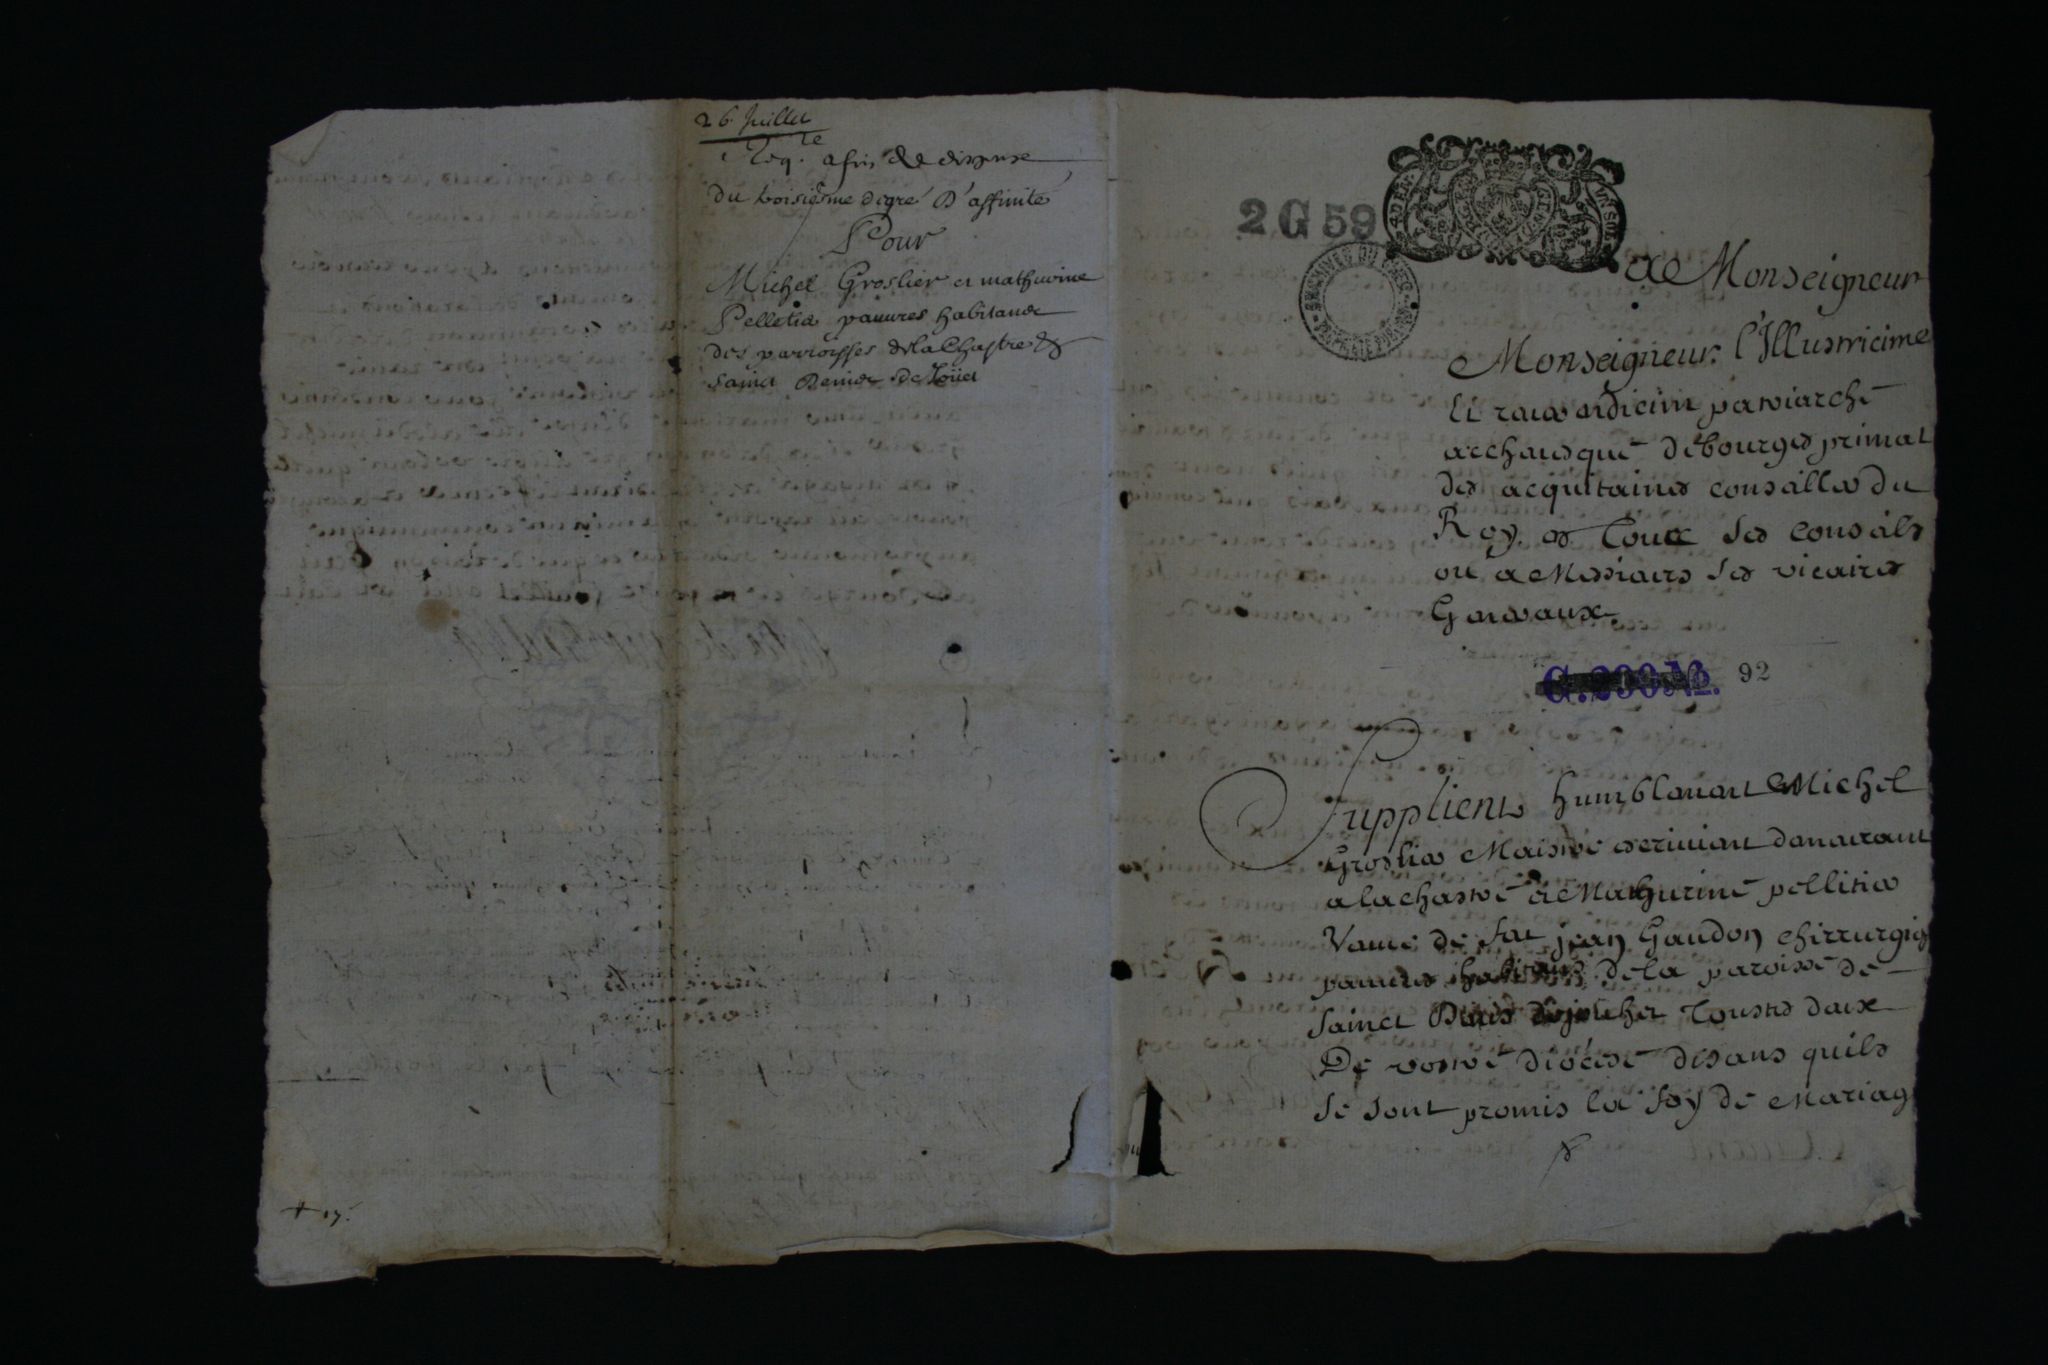 26. Juillet
Req.te afin de dispense
du troisiesme degré d'affinité
Pour
Michel Groslier et mathurine
Pelletier pauures habitans
des parroisses de la Chastre &
sainct Denis de Joüet
+ 17.
2 G 59
A Monseigneur
Monseigneur l'Illustricime
et reuerendicime patriarche
archeuesque de bourges primat
des acquitaines conseiller du
Roy en tous ses conseils
ou a Messieurs ses vicaires
Generaux
G. 290
92
Supplient humblement Michel
Groslier Maistre escriuain demeurant
a la chastre et Mathurine pelletier
Veuue de feu jean Gaudon chirurgien
pauures habitans de la paroisse de
sainct Denis de touts deux
De vostre diocese disans quils
se sont promis la foy de Mariage